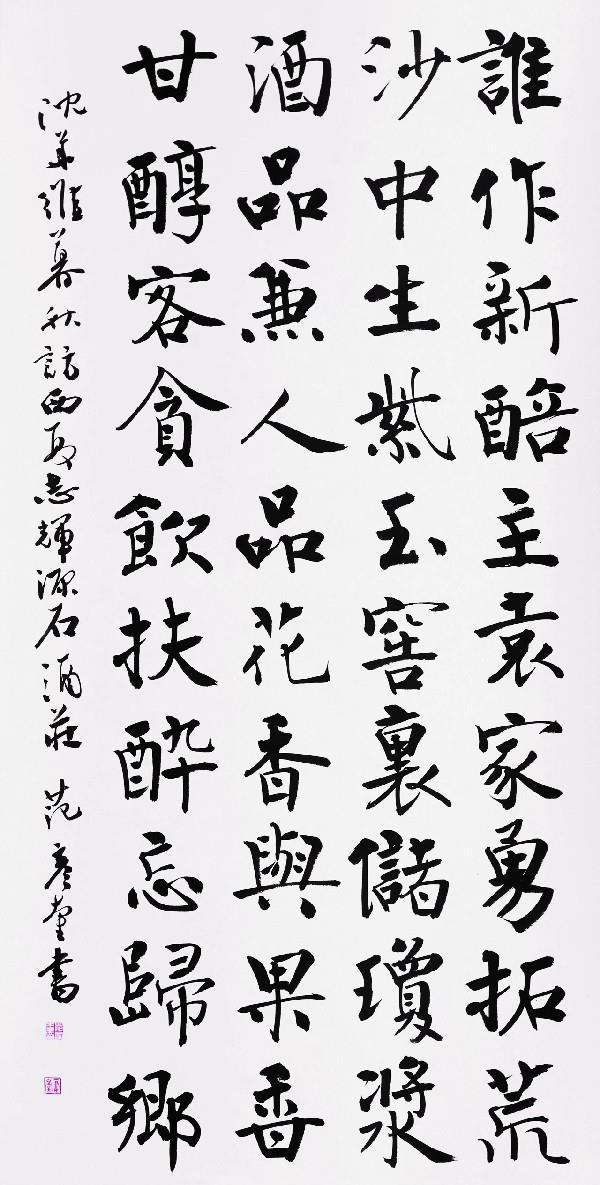 誰作新醅主袁家勇拓荒
沙中生紫玉窖裏儲瓊漿
酒品兼人品花香與果香
甘醇客貪飲扶醉忘歸鄉
沈華維暮秋訪西夏志輝源石酒莊 范書